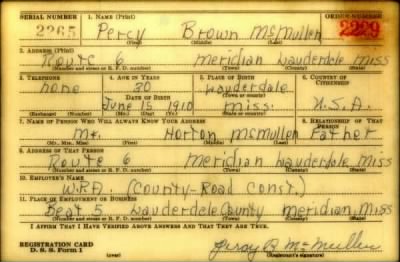 SERIAL NUMBER 1. NAME (Print) ORDER NUMBER
2265 Percy Brown McMullen 2229
(First) (Middle) (Last)
2. ADDRESS (Print)
Route 6 Meridian Lauderdale Miss
(Number and street or R. F. D. number) (Town) (County) (State)
3. TELEPHONE 4. AGE IN YEARS 5. PLACE OF BIRTH 6. COUNTRY OF CITIZENSHIP
none 30 Lauderdale
DATE OF BIRTH (Town or county)
June 15 1910 Miss. U.S.A.
(Exchange) (Number) (Mo.) (Day) (Yr.) (State or country)
7. NAME OF PERSON WHO WILL ALWAYS KNOW YOUR ADDRESS 8. RELATIONSHIP OF THAT PERSON
Mr. Horton McMullen Father
(Mr., Mrs., Miss) (First) (Middle) (Last)
9. ADDRESS OF THAT PERSON
Route 6 Meridian Lauderdale Miss
(Number and street or R. F. D. number) (Town) (County) (State)
10. EMPLOYER'S NAME
W.P.A. (County-Road Const.)
11. PLACE OF EMPLOYMENT OR BUSINESS
Beat 5 Lauderdale County Meridian, Miss
(Number and street or R. F. D. number) (Town) (County) (State)
I AFFIRM THAT I HAVE VERIFIED ABOVE ANSWERS AND THAT THEY ARE TRUE.
REGISTRATION CARD
D. S. S. Form 1 McMullen
(Registrant's signature)